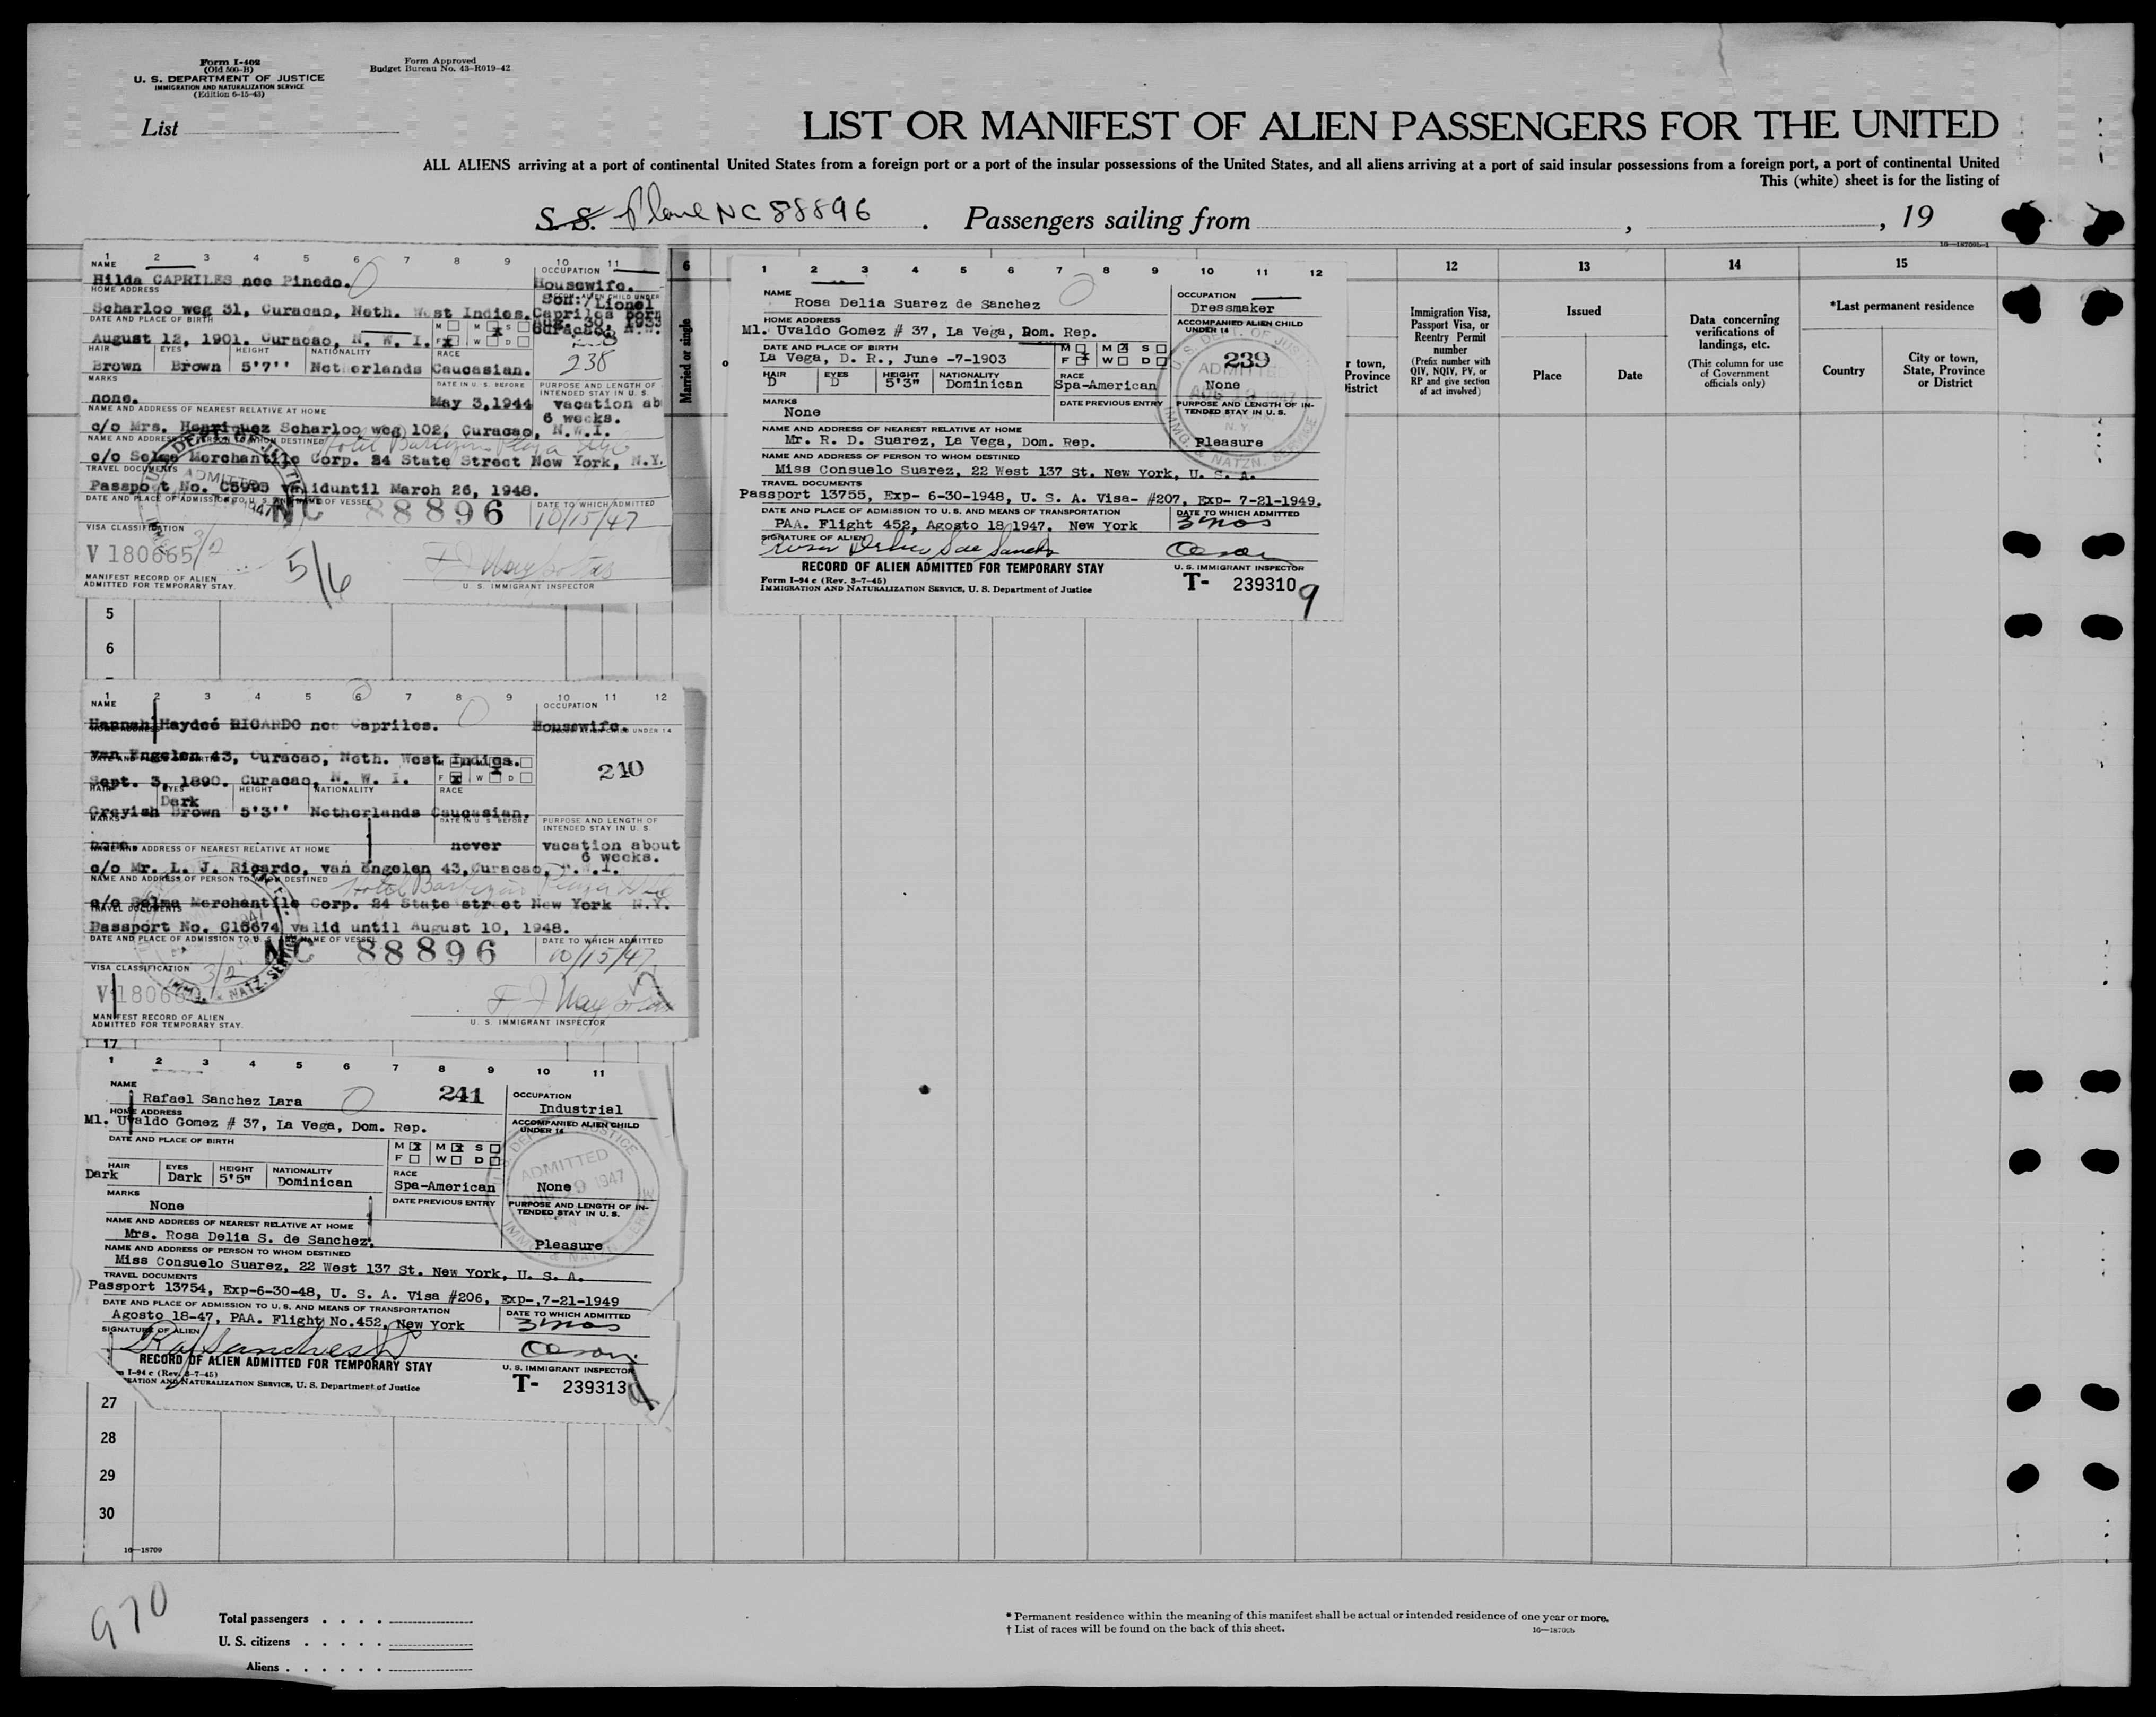 Form I-402
(Old 500-B)
U. S. DEPARTMENT OF JUSTICE
IMMIGRATION AND NATURALIZATION SERVICE
(Edition 6-15-43)
Form Approved
Budget Bureau No. 43-R019-42
List
LIST OR MANIFEST OF ALIEN PASSENGERS FOR THE UNITED
ALL ALIENS arriving at a port of continental United States from a foreign port or a port of the insular possessions of the United States, and all aliens arriving at a port of said insular possessions from a foreign port, a port of continental United
This (white) sheet is for the listing of
S. S. Plane NC 88896 . Passengers sailing from , , 19
1 2 3 4 5 6 7 8 9 10 11
NAME
OCCUPATION
Hilda CAPRILES nee Pinedo.
Housewife.
HOME ADDRESS
Son: Lionel
Scharloo weg 31, Curacao, Neth. West Indies.
Capriles born
DATE AND PLACE OF BIRTH
August 12, 1901. Curacao, N. W. I.
M M S
F W D
238
HAIR EYES HEIGHT NATIONALITY RACE
Brown Brown 5'7'' Netherlands Caucasian.
MARKS
DATE IN U. S. BEFORE
PURPOSE AND LENGTH OF INTENDED STAY IN U. S.
none.
May 3, 1944
vacation ab
6 weeks.
NAME AND ADDRESS OF NEAREST RELATIVE AT HOME
c/o Mrs. Henriquez Scharloo weg 102, Curacao, N.W.I.
NAME AND ADDRESS OF PERSON TO WHOM DESTINED
Hotel Barbizon Plaza
c/o Selma Merchantile Corp. 24 State Street New York, N.Y.
TRAVEL DOCUMENTS
Passport No. C5993 valid until March 26, 1948.
DATE AND PLACE OF ADMISSION TO U. S. AND NAME OF VESSEL
DATE TO WHICH ADMITTED
NC 88896
10/15/47
VISA CLASSIFICATION
3/2
V 180665
5/6
MANIFEST RECORD OF ALIEN
ADMITTED FOR TEMPORARY STAY.
U. S. IMMIGRANT INSPECTOR
6
Married or single
1 2 3 4 5 6 7 8 9 10 11 12
NAME
Rosa Delia Suarez de Sanchez
OCCUPATION
Dressmaker
HOME ADDRESS
Ml. Uvaldo Gomez # 37, La Vega, Dom. Rep.
ACCOMPANIED ALIEN CHILD UNDER 14
DATE AND PLACE OF BIRTH
La Vega, D. R., June -7-1903
M M S
F W D
239
HAIR EYES HEIGHT NATIONALITY RACE
D D 5'3" Dominican Spa-American
None
MARKS
None
DATE PREVIOUS ENTRY
PURPOSE AND LENGTH OF INTENDED STAY IN U. S.
NAME AND ADDRESS OF NEAREST RELATIVE AT HOME
Mr. R. D. Suarez, La Vega, Dom. Rep.
Pleasure
NAME AND ADDRESS OF PERSON TO WHOM DESTINED
Miss Consuelo Suarez, 22 West 137 St. New York, U. S. A.
TRAVEL DOCUMENTS
Passport 13755, Exp- 6-30-1948, U. S. A. Visa- #207, Exp- 7-21-1949.
DATE AND PLACE OF ADMISSION TO U. S. AND MEANS OF TRANSPORTATION
DATE TO WHICH ADMITTED
PAA. Flight 452, Agosto 18, 1947. New York
3 mos
SIGNATURE OF ALIEN
RECORD OF ALIEN ADMITTED FOR TEMPORARY STAY
U. S. IMMIGRANT INSPECTOR
Form I-94 c (Rev. 3-7-45)
IMMIGRATION AND NATURALIZATION SERVICE, U. S. Department of Justice
T- 239310
9
12 13 14 15
r town,
Province
District
Immigration Visa, Passport Visa, or Reentry Permit number
(Prefix number with QIV, NQIV, PV, or RP and give section of act involved)
Issued
Place
Date
Data concerning verifications of landings, etc.
(This column for use of Government officials only)
*Last permanent residence
Country
City or town, State, Province or District
5
6
1 2 3 4 5 6 7 8 9 10 11 12
NAME
OCCUPATION
Hannah Haydeé RICARDO nee Capriles.
Housewife.
van Engelen 43, Curacao, Neth. West Indies.
Sept. 3, 1890. Curacao, N. W. I.
F W D
240
HAIR EYES HEIGHT NATIONALITY RACE
Greyish Dark Brown 5'3'' Netherlands Caucasian.
MARKS
DATE IN U. S. BEFORE
PURPOSE AND LENGTH OF INTENDED STAY IN U. S.
none
never
vacation about
6 weeks.
NAME AND ADDRESS OF NEAREST RELATIVE AT HOME
c/o Mr. L. J. Ricardo, van Engelen 43, Curacao, N.W.I.
NAME AND ADDRESS OF PERSON TO WHOM DESTINED
Hotel Barbizon Plaza
c/o Selma Merchantile Corp. 24 State street New York N.Y.
TRAVEL DOCUMENTS
Passport No. C16674 valid until August 10, 1948.
DATE AND PLACE OF ADMISSION TO U. S. AND NAME OF VESSEL
DATE TO WHICH ADMITTED
NC 88896
10/15/47
VISA CLASSIFICATION
3/2
MANIFEST RECORD OF ALIEN
ADMITTED FOR TEMPORARY STAY.
U. S. IMMIGRANT INSPECTOR
17
1 2 3 4 5 6 7 8 9 10 11
NAME
Rafael Sanchez Lara
241
OCCUPATION
Industrial
HOME ADDRESS
Ml. Uvaldo Gomez # 37, La Vega, Dom. Rep.
ACCOMPANIED ALIEN CHILD UNDER 14
DATE AND PLACE OF BIRTH
M M S
F W D
HAIR EYES HEIGHT NATIONALITY RACE
Dark Dark 5'5" Dominican Spa-American
None
ADMITTED
AUG 19 1947
MARKS
None
DATE PREVIOUS ENTRY
PURPOSE AND LENGTH OF INTENDED STAY IN U. S.
NAME AND ADDRESS OF NEAREST RELATIVE AT HOME
Mrs. Rosa Delia S. de Sanchez.
Pleasure
NAME AND ADDRESS OF PERSON TO WHOM DESTINED
Miss Consuelo Suarez, 22 West 137 St. New York, U. S. A.
TRAVEL DOCUMENTS
Passport 13754, Exp-6-30-48, U. S. A. Visa #206, Exp-,7-21-1949
DATE AND PLACE OF ADMISSION TO U. S. AND MEANS OF TRANSPORTATION
DATE TO WHICH ADMITTED
Agosto 18-47, PAA. Flight No.452, New York
3 mos
SIGNATURE OF ALIEN
RECORD OF ALIEN ADMITTED FOR TEMPORARY STAY
U. S. IMMIGRANT INSPECTOR
I-94 c (Rev. 3-7-45)
NATURALIZATION SERVICE, U. S. Department of Justice
T- 239313
27
28
29
30
16-18709
970
Total passengers . . . .
U. S. citizens . . . . .
Aliens . . . . . .
* Permanent residence within the meaning of this manifest shall be actual or intended residence of one year or more.
† List of races will be found on the back of this sheet.